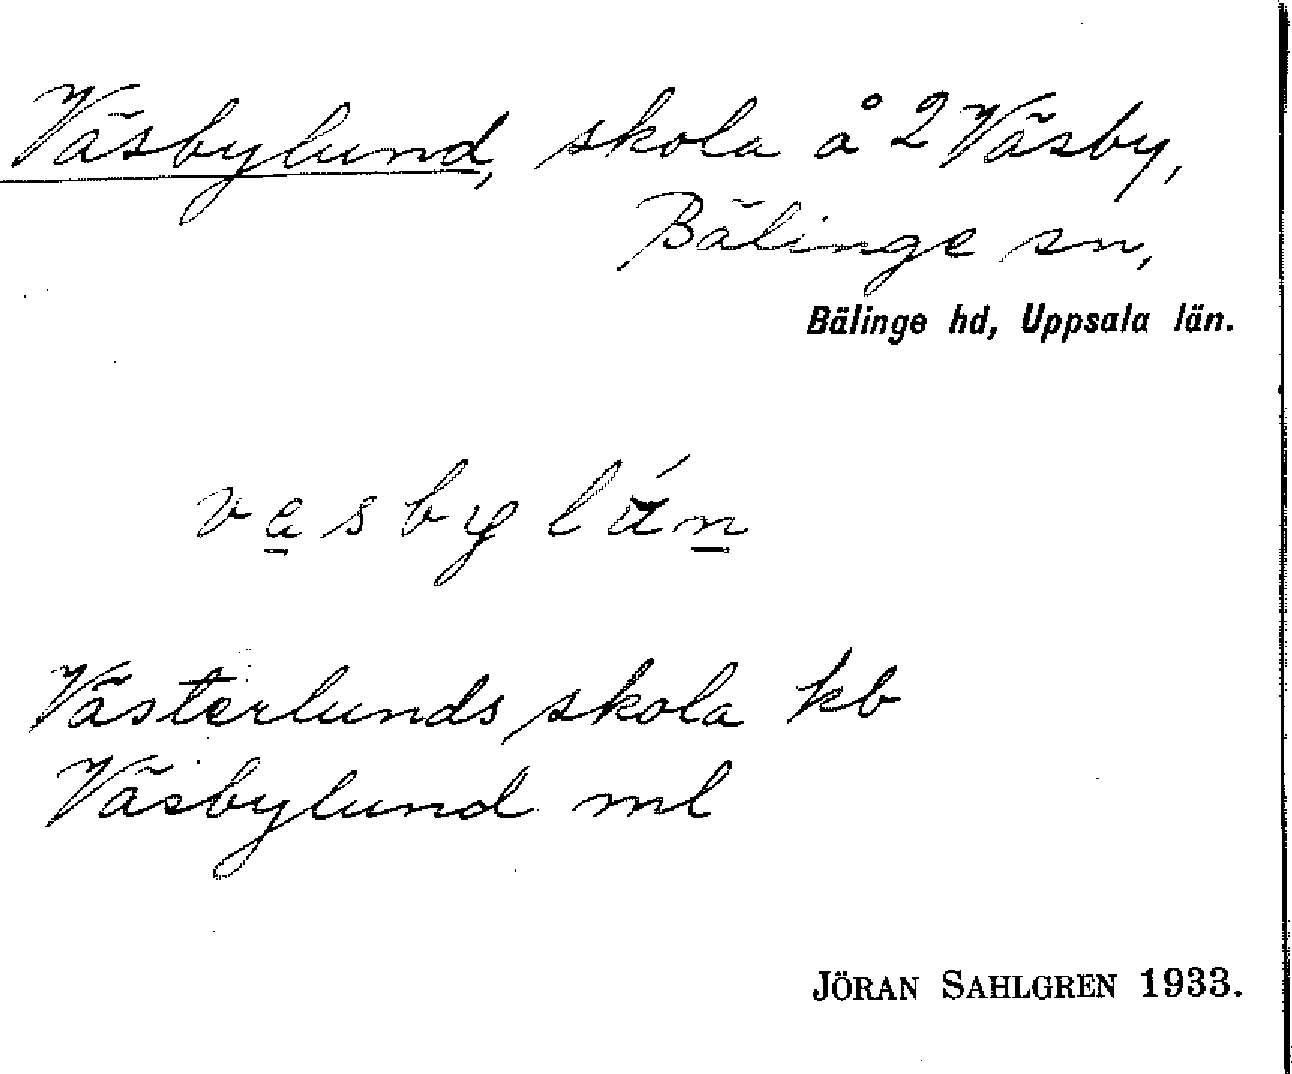 Väsbylund, skola å 2 Väsby,
Bälinge sn,
Bälinge hd, Uppsala län.
Västerlunds skola kb
Väsbylund ml
JÖRAN SAHLGREN 1933.